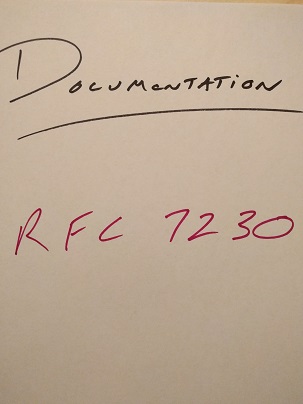 Documentation
RFC 7230